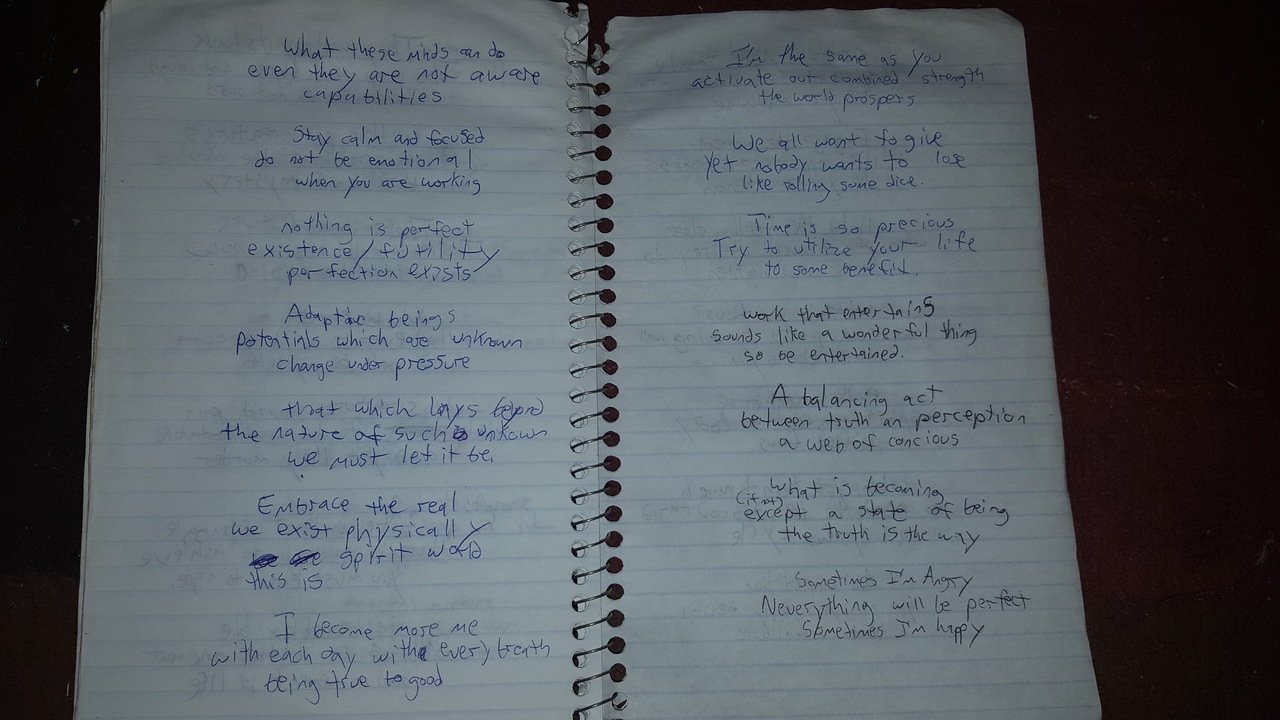 What these minds can do
even they are not aware
capabilities
Stay calm and focused
do not be emotional
when you are working
nothing is perfect
existence/futility
perfection exists
Adaptive beings
potentials which are unknown
change under pressure
that which lays beyond
the nature of such unkown
we must let it be.
Embrace the real
we exist physically
spirit world
this is
I become more me
with each day with every breath
being true to good
I'm the same as you
activate our combined strength
the world prospers
We all want to give
Yet nobody wants to lose
like rolling some dice.
Time is so precious
Try to utilize your life
to some benefit.
work that entertains
sounds like a wonderful thing
so be entertained.
A balancing act
between truth an perception
a web of concious
What is becoming
(if not)
except a state of being
the truth is the way
Sometimes I'm Angry
Neverything will be perfect
Sometimes I'm happy